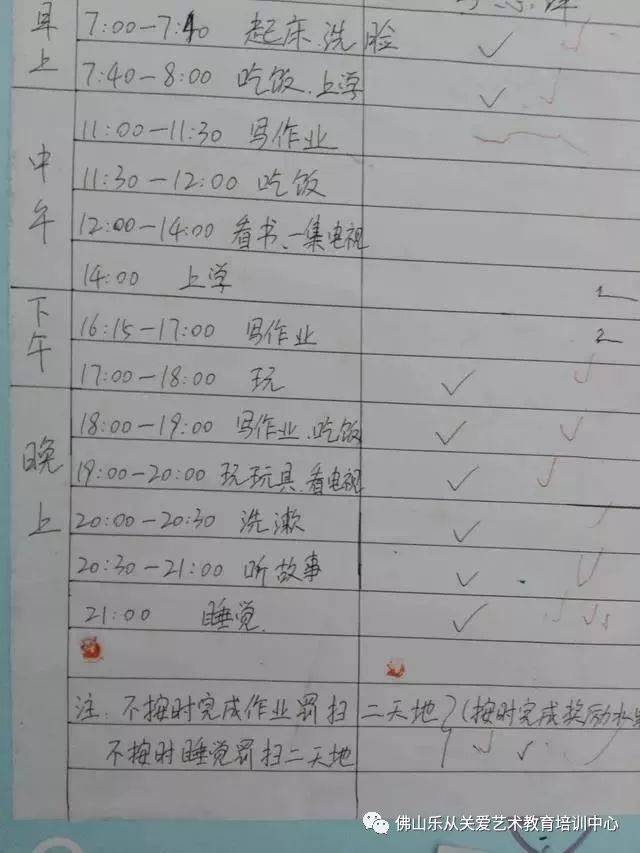 早上 7:00—7:40 起床、洗脸
7:40—8:00 吃饭、上学
中午 11:00—11:30 写作业
11:30—12:00 吃饭
12:00—14:00 看书、一集电视
14:00 上学
下午 16:15—17:00 写作业
17:00—18:00 玩
晚上 18:00—19:00 写作业、吃饭
19:00—20:00 玩玩具、看电视
20:00—20:30 洗漱
20:30—21:00 听故事
21:00 睡觉
注: 不按时完成作业罚扫二天地 (按时完成奖励
不按时睡觉罚扫二天地
佛山乐从关爱艺术教育培训中心